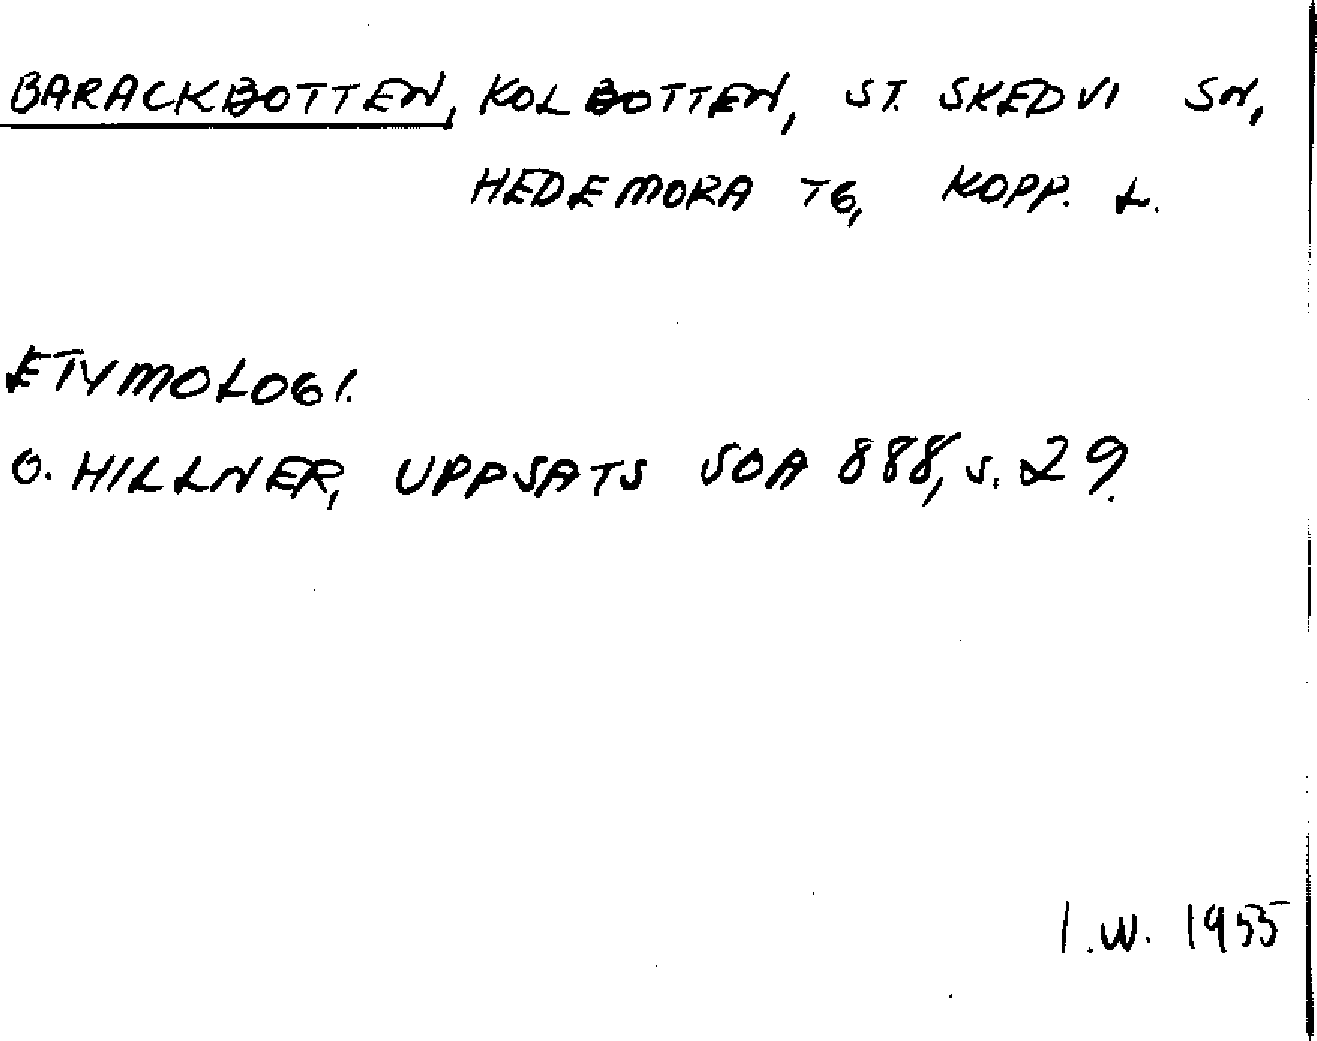 BARACKBOTTEN, KOLBOTTEN, ST. SKEDVI SN,
HEDEMORA TG, KOPP. L.
ETYMOLOGI.
O. HILLNER, UPPSATS SOA 888, S. 29.
I.W. 1955